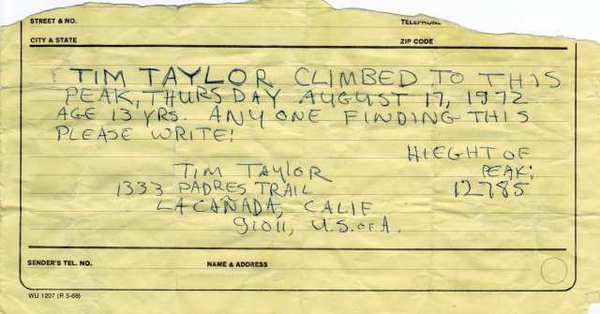 STREET & NO.
TELEPHONE
CITY & STATE
ZIP CODE
TIM TAYLOR CLIMBED TO THIS
PEAK, THURSDAY AUGUST 17, 1972
AGE 13 YRS. ANYONE FINDING THIS
PLEASE WRITE!
HIEGHT OF
PEAK:
12785
TIM TAYLOR
1333 PADRES TRAIL
LA CAÑADA, CALIF
91011, U.S. OF A.
SENDER'S TEL. NO.
NAME & ADDRESS
WU 1207 (R 5-69)